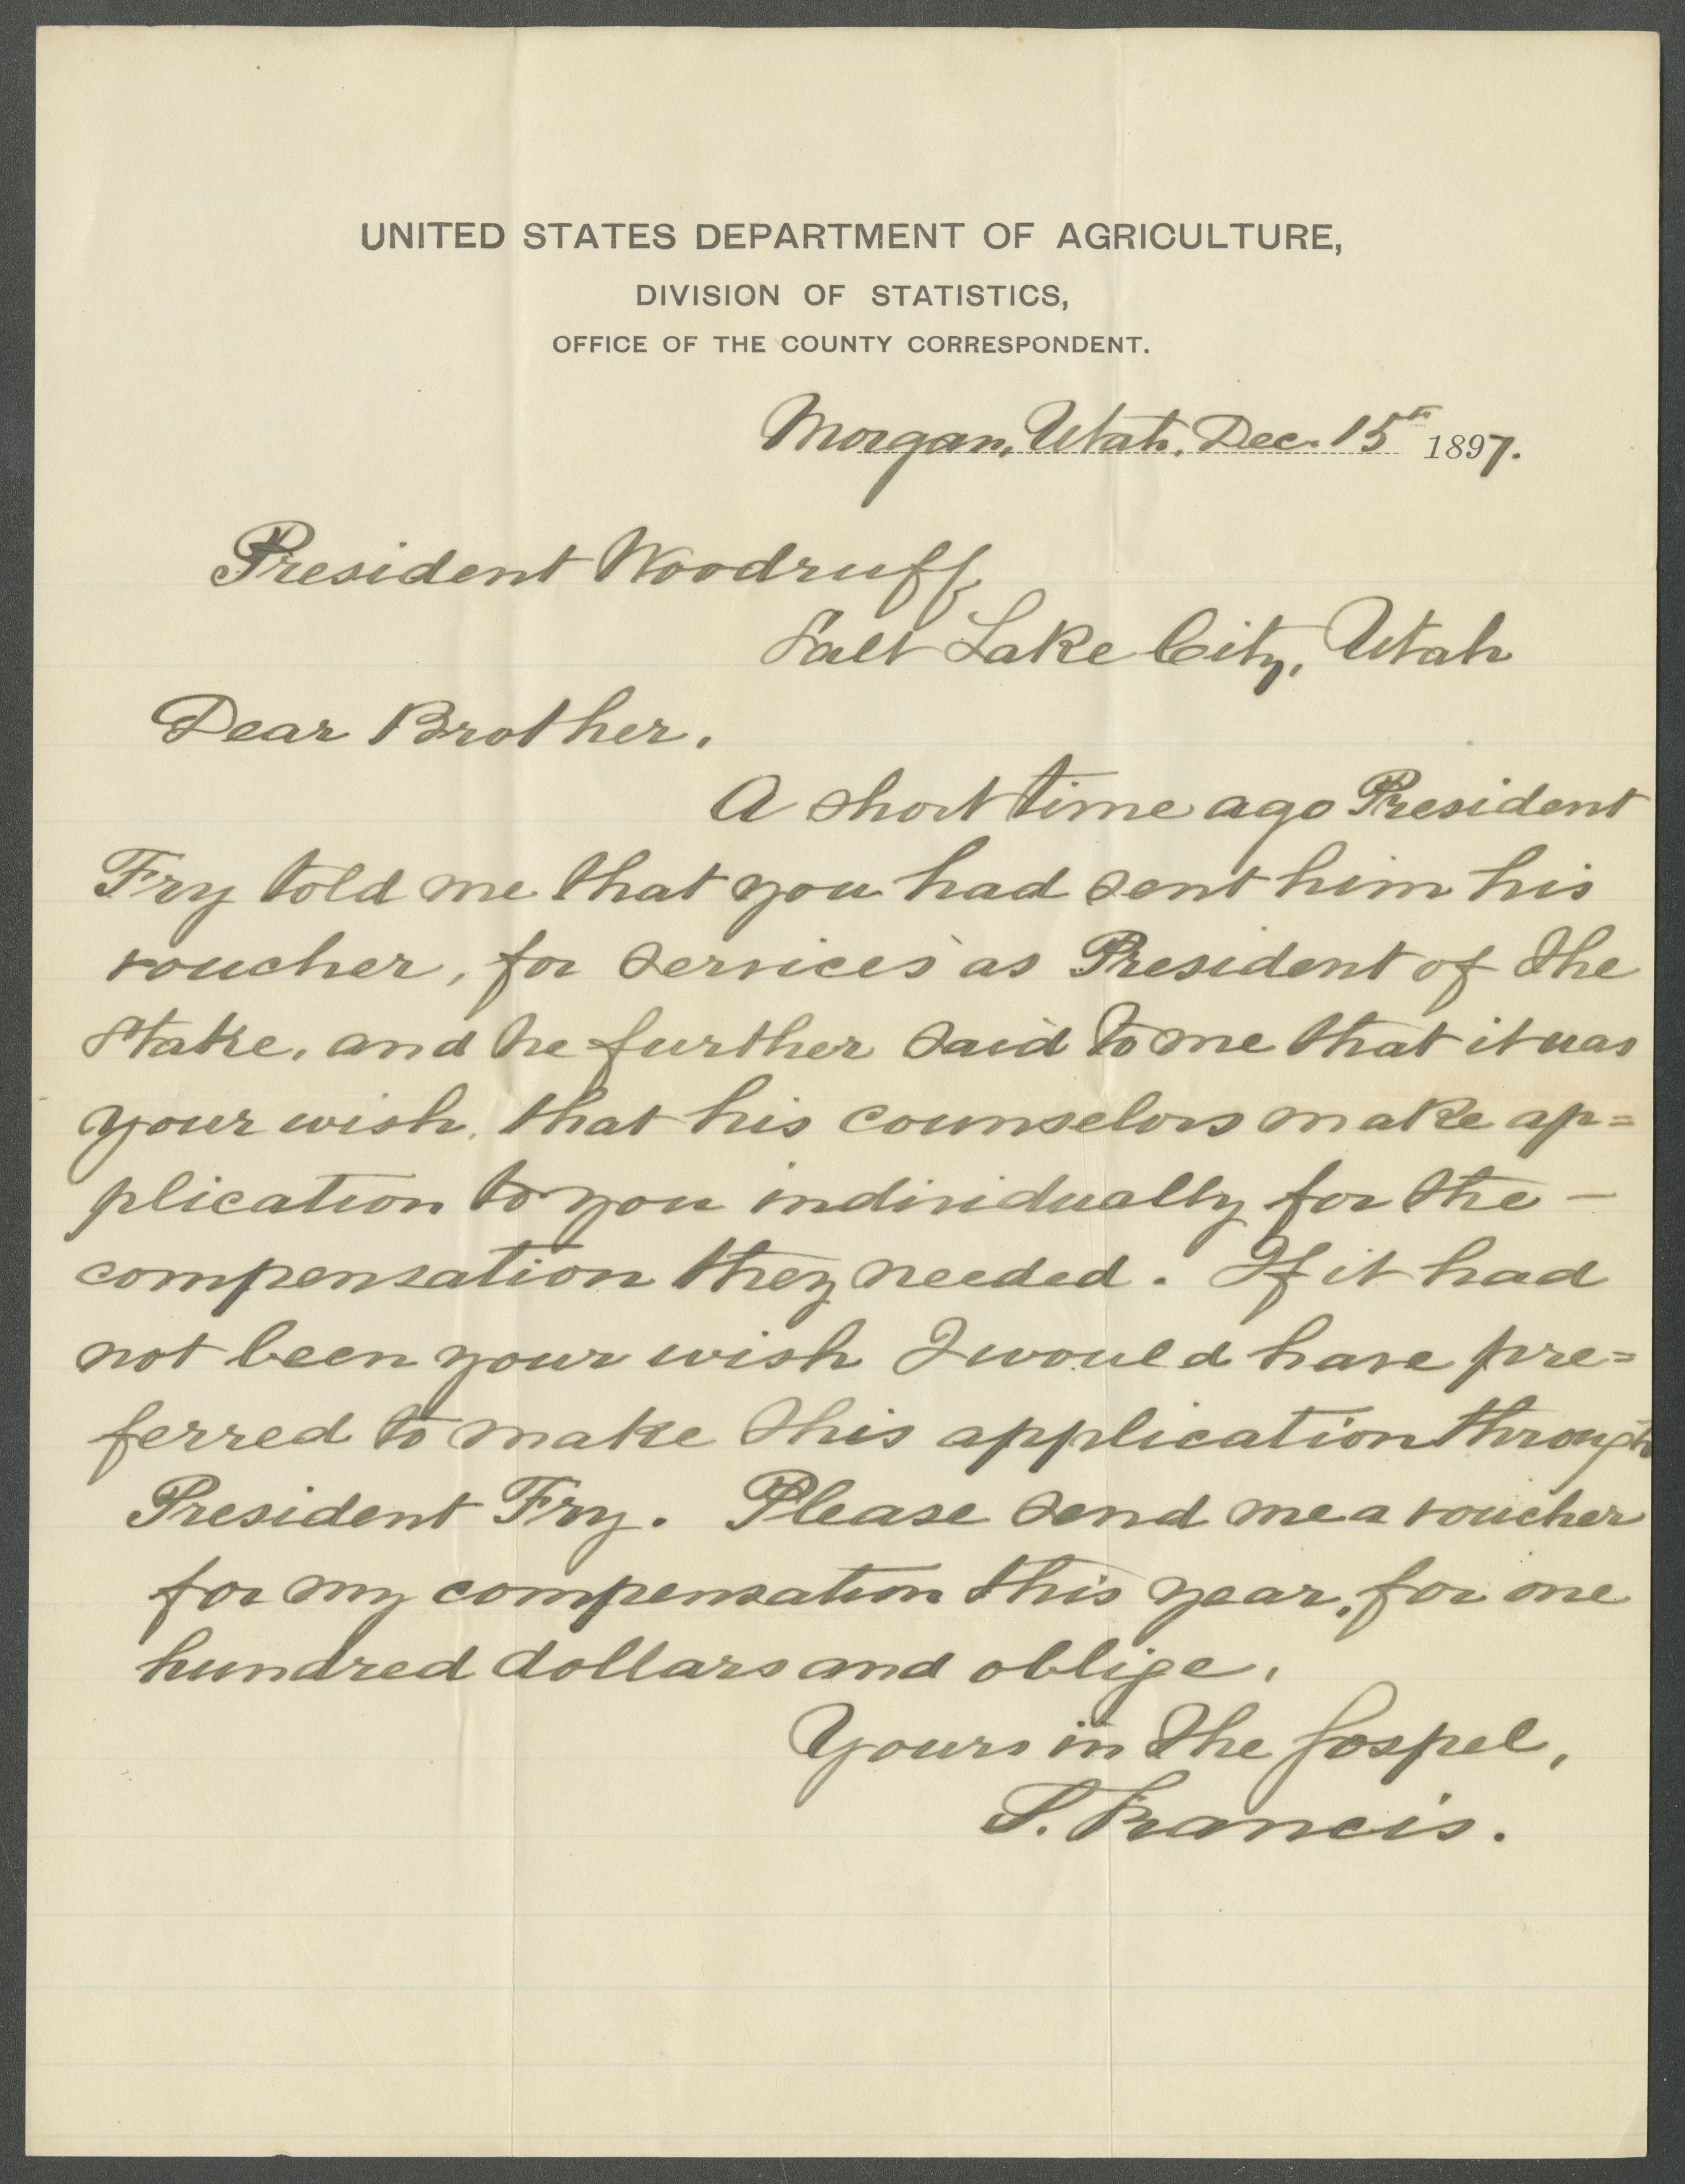 UNITED STATES DEPARTMENT OF AGRICULTURE,
DIVISION OF STATISTICS,
OFFICE OF THE COUNTY CORRESPONDENT.
Morgan, Utah, Dec. 15th 1897.
President Woodruff
Salt Lake City, Utah
Dear Brother.
A short time ago President
Fry told me that you had sent him his
voucher, for services as President of the
Stake, and he further said to me that it was
your wish, that his counselors make ap=
plication to you individually for the -
compensation they needed. If it had
not been your wish I would have pre=
ferred to make this application through
President Fry. Please send me a voucher
for my compensation this year, for one
hundred dollars and oblige,
Yours in the Gospel,
S. Francis.